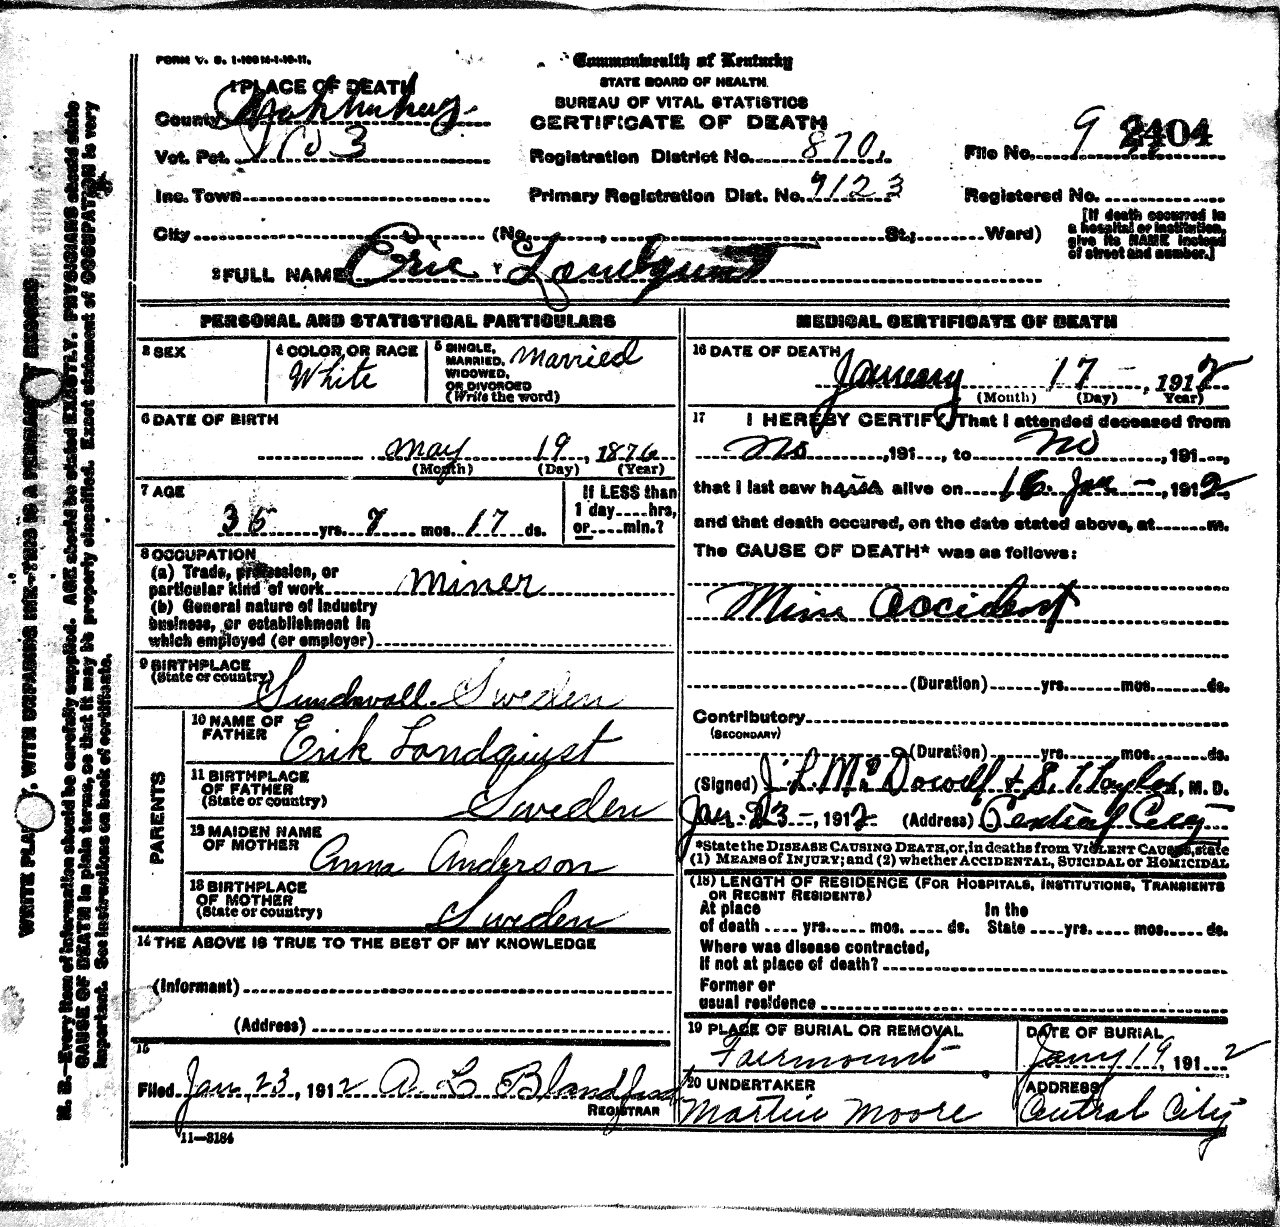 FORM V. S. 1-100M-1-10-11.
Commonwealth of Kentucky
STATE BOARD OF HEALTH.
BUREAU OF VITAL STATISTICS
CERTIFICATE OF DEATH
1 PLACE OF DEATH
County Muhlenberg
Vot. Pct. No 3
Inc. Town
City (No. , St.; Ward)
Registration District No. 870
Primary Registration Dist. No. 7123
File No. 9 2404
Registered No.
[If death occurred in
a hospital or institution,
give its NAME instead
of street and number.]
2 FULL NAME Eric Londquist
PERSONAL AND STATISTICAL PARTICULARS
3 SEX
4 COLOR OR RACE White
5 SINGLE, MARRIED, WIDOWED, OR DIVORCED (Write the word) Married
6 DATE OF BIRTH
May 19, 1876
(Month) (Day) (Year)
7 AGE
35 yrs. 7 mos. 17 ds.
If LESS than
1 day hrs,
or min.?
8 OCCUPATION
(a) Trade, profession, or
particular kind of work Miner
(b) General nature of industry
business, or establishment in
which employed (or employer)
9 BIRTHPLACE
(State or country) Sundsvall Sweden
PARENTS
10 NAME OF
FATHER Erik Londquist
11 BIRTHPLACE
OF FATHER
(State or country) Sweden
12 MAIDEN NAME
OF MOTHER Anna Anderson
13 BIRTHPLACE
OF MOTHER
(State or country) Sweden
14 THE ABOVE IS TRUE TO THE BEST OF MY KNOWLEDGE
(Informant)
(Address)
15
Filed Jan 23, 1912 A L Blandford
REGISTRAR
11—3184
MEDICAL CERTIFICATE OF DEATH
16 DATE OF DEATH
January 17 , 1912
(Month) (Day) Year)
17 I HEREBY CERTIFY, That I attended deceased from
No , 191 , to No , 191 ,
that I last saw h alive on 16 Jan , 1912
and that death occured, on the date stated above, at m.
The CAUSE OF DEATH* was as follows:
Mine accident
(Duration) yrs. mos. ds.
Contributory
(SECONDARY)
(Duration) yrs. mos. ds.
(Signed) J. L. McDowell & S. T. Taylor, M. D.
Jan. 23 , 1912 (Address) Central City
*State the DISEASE CAUSING DEATH, or, in deaths from VIOLENT CAUSES, state
(1) MEANS OF INJURY; and (2) whether ACCIDENTAL, SUICIDAL OR HOMICIDAL
(18) LENGTH OF RESIDENCE (FOR HOSPITALS, INSTITUTIONS, TRANSIENTS
OR RECENT RESIDENTS)
At place In the
of death yrs. mos. ds. State yrs. mos. ds.
Where was disease contracted,
if not at place of death?
Former or
usual residence
19 PLACE OF BURIAL OR REMOVAL
Fairmount
DATE OF BURIAL
Jany 19, 1912
20 UNDERTAKER
Martin Moore
ADDRESS
Central City
WRITE PLAINLY, WITH UNFADING INK—THIS IS A PERMANENT RECORD
N. B.—Every item of information should be carefully supplied. AGE should be stated EXACTLY. PHYSICIANS should state
CAUSE OF DEATH in plain terms, so that it may be properly classified. Exact statement of OCCUPATION is very
important. See instructions on back of certificate.